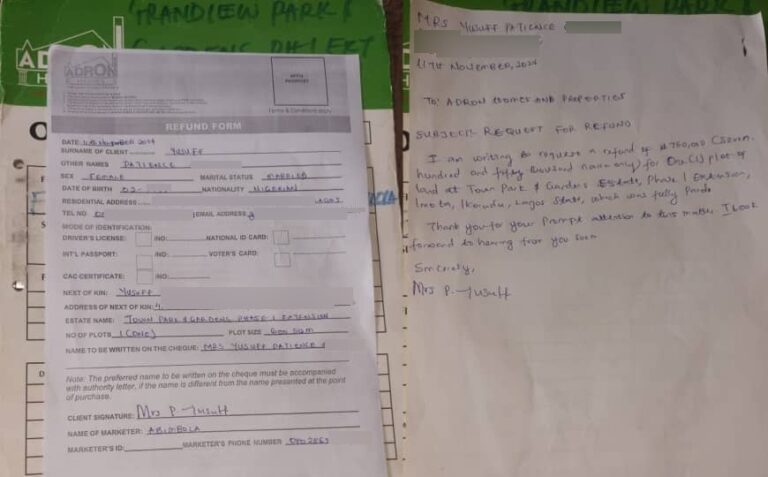 GRANDVIEW PARK &
GARDENS PHLEXT
ADRON
H
ADRON
AFFIX
PASSPORT
Terms & Conditions apply
REFUND FORM
DATE: NOVEMBER 2024
SURNAME OF CLIENT YUSUFF
OTHER NAMES PATIENCE
SEX FEMALE MARITAL STATUS MARRIED
DATE OF BIRTH 02- NATIONALITY NIGERIAN
RESIDENTIAL ADDRESS LAGOS
TEL NO 01 EMAIL ADDRESS
MODE OF IDENTIFICATION:
DRIVER'S LICENSE: NO: NATIONAL ID CARD:
INT'L PASSPORT: NO: VOTER'S CARD:
CAC CERTIFICATE: NO:
NEXT OF KIN: YUSUFF
ADDRESS OF NEXT OF KIN: 4,
ESTATE NAME: TOWN PARK & GARDENS PHASE 1 EXTENSION
NO OF PLOTS 1 (ONE) PLOT SIZE 600 SQM
NAME TO BE WRITTEN ON THE CHEQUE: MRS YUSUFF PATIENCE
Note: The preferred name to be written on the cheque must be accompanied
with authority letter, if the name is different from the name presented at the point
of purchase.
CLIENT SIGNATURE: Mrs P. Yusuff
NAME OF MARKETER: ABIMBOLA
MARKETER'S ID: MARKETER'S PHONE NUMBER
PARK &
MRS YUSUFF PATIENCE
11TH NOVEMBER, 2024
TO: ADRON HOMES AND PROPERTIES
SUBJECT: REQUEST FOR REFUND
I am writing to request a refund of ₦750,000 (Seven
hundred and fifty thousand naira only) for One (1) plot of
land at Town Park & Gardens Estate, Phase 1 Extension,
Imota, Ikorodu, Lagos State, which was fully paid.
Thank you for your Prompt attention to this matter. I look
forward to hearing from you soon
Sincerely,
Mrs P. Yusuff